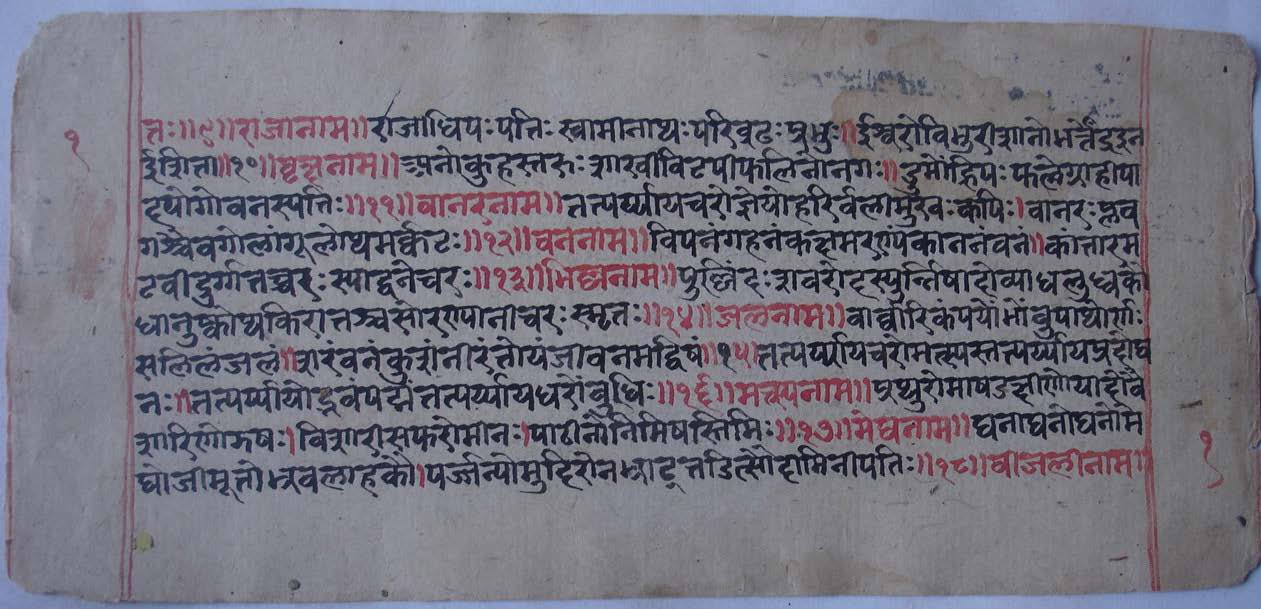 तः॥९॥राजानाम॥राजाधिपः पतिः स्वामीनाथः परिवृढः प्रभुः॥ईश्वरोविभुरीशानोभर्त्तेंद्रइन
ईशिता॥१०॥वृक्षनाम॥अनोकुहस्तरुः शाखीविटपीफलिनोनगः॥द्रुमोंह्रिपः फलेग्राहीपा
दपोगोवनस्पतिः॥११॥वानरनाम॥तत्पर्य्यायचरोज्ञेयोहरिर्वलीमुखः कपिः।वानरः प्लव
गश्चैवगोलांगूलोथमर्क्कटः॥१२॥वननाम॥विपनंगहनंकक्षमरण्यंकाननंवनं॥कांतारम
टवीदुर्गंतच्चरः स्याद्वनेचरः॥१३॥भिल्लनाम॥पुलिंदः शवरोदस्युर्न्निषादोव्याधलुब्धकौ
धानुष्कोथकिरातश्चसोरण्यानीचरः स्मृतः॥१४॥जलनाम॥वार्व्वारिकंपयोंभोंबुपाथोर्णः
सलिलंजलं॥शरंवनंकुशंनीरंतोयंजीवनमद्विषं॥१५।तत्पर्य्यायचरोमत्स्यस्तत्पर्य्यायप्रदोघ
नः॥तत्पर्य्यायोद्भवंपद्मंतत्पर्य्यायधरोंबुधिः॥१६॥मत्स्यनाम॥पृथुरोमाषडक्षीणोयादोवै
शारिणोझषः।विशारीसफरोमीनः।पाठीनोनिमिषस्तिमिः॥१७॥मेघनाम॥घनाघनोघनोमे
घोजीमूतोभ्रवलाहकौ।पर्जन्योमुदिरोनभ्राट्तडित्सौदामिनीपतिः॥१८॥वीजलीनाम॥
१
१